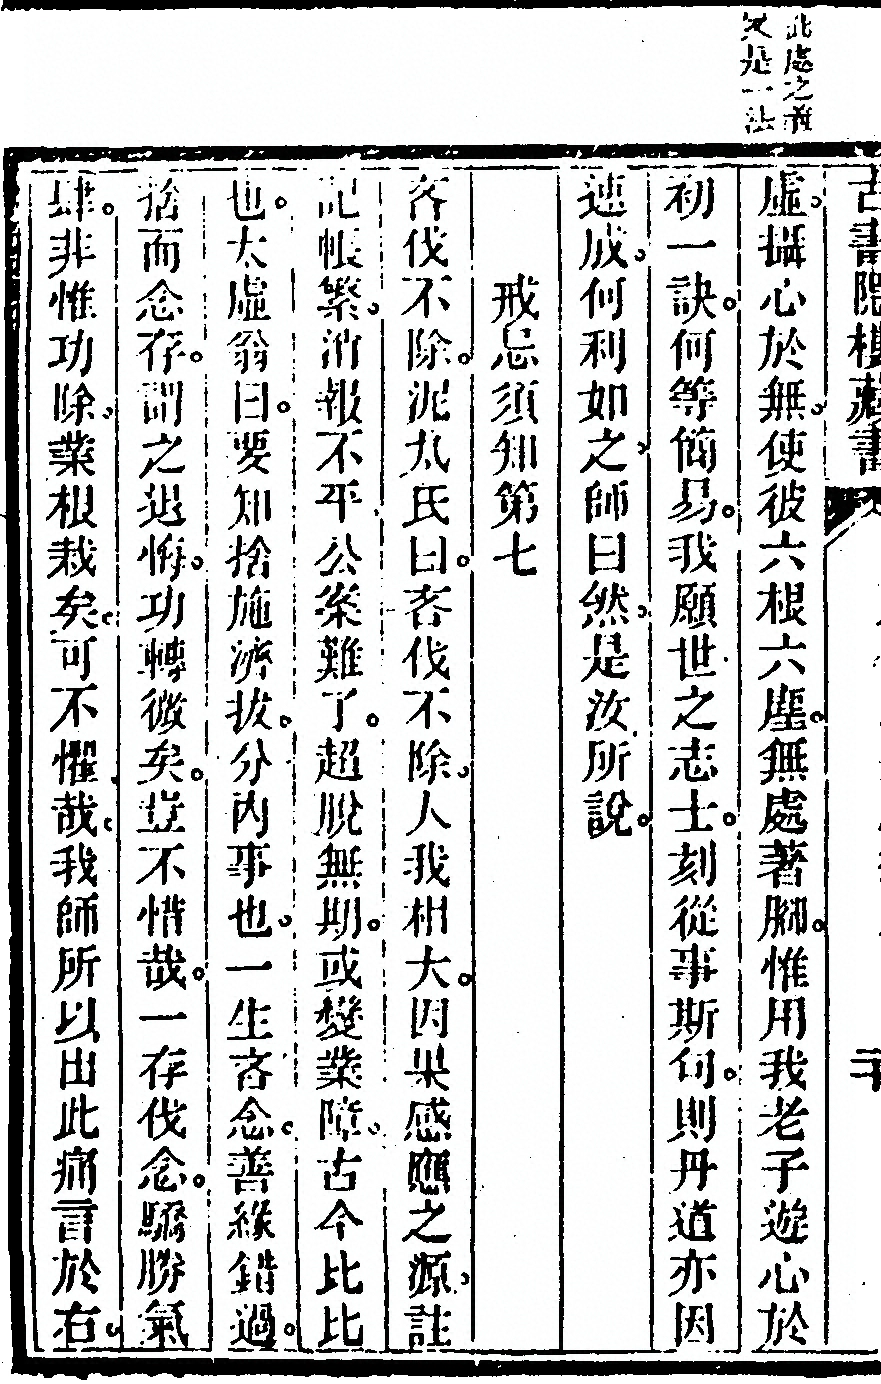 此處之前
又是一法
古書隱樓藏書
二十
虛。攝心於無。使彼六根六塵。無處著腳。惟用我老子遊心於
初一訣。何等簡易。我願世之志士。刻從事斯句。則丹道亦因
速成。何利如之。師曰然。是汝所說。
戒忌須知第七
吝伐不除。泥丸氏曰。吝伐不除。人我相大。因果感應之源。註
記帳繁。消報不平。公案難了。超脫無期。或變業障。古今比比
也。太虛翁曰。要知捨施濟拔。分內事也。一生吝念。善緣錯過。
捨而念存。謂之退悔。功轉微矣。豈不惜哉。一存伐念。驕勝氣
肆。非惟功除。業根栽矣。可不懼哉。我師所以出此痛言於右。